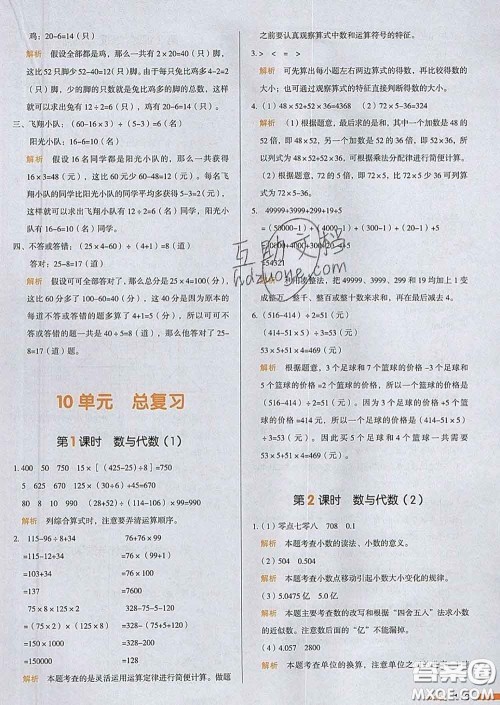 鸡：20-6=14（只）
解析 假设全部都是鸡，那么一共有 2×20=40（只）脚，
这比 52 只脚少 52-40=12（只）脚，因为兔比鸡多 4-2=2
（只）脚，少的脚的只数就是兔比鸡多的脚的总数，这样
就可以求出兔有 12÷2=6（只），鸡有 20-6=14（只）。
三、飞翔小队：（60-16×3）÷（5-3）=6（名）
阳光小队：16-6=10（名）
解析 假设 16 名同学都是阳光小队的，那么一共获得
16×3=48（元），这比 60 元少 60-48=12（元），每名飞
翔小队的同学比阳光小队的同学平均多获得 5-3=2（元），
这样就可以求出飞翔小队有 12÷2=6（名），阳光小队
有 16-6=10（名）。
四、不答或答错：（25×4-60）÷（4+1）=8（道）
答对：25-8=17（道）
解析 假设可可全部答对了，那么总分是 25×4=100（分），
这比实际多了 100-60=40（分），这 40 分是因为原本的
每道不答或答错的题多算了 4+1=5（分），所以不答或
答错的题一共是 40÷5=8（道），那么他答对了 25-
8=17（道）。
10 单元 总复习
第 1 课时 数与代数（1）
1. 400 50 750 15×［（425-25）÷8］=750
75 20 600 45 （15×30）÷（6+4）=45
80 8 990 10 990÷［（29+82）-12］=10
解析 列综合算式时，注意要弄清运算顺序。
2. 115-96÷8+34 76+76×99
=115-12+34 =76×（99+1）
=103+34 =76×100
=137 =7600
75×8×125×2 328-75-5-5-110
=（75×2）×（8×125） =328-（75+5+5+110）
=150×1000 =328-200
=150000 =128
解析 本题考查的是灵活运用运算定律进行简便计算。做题
之前要认真观察算式中数和运算符号的特征。
3. > < = >
解析 可先算出每小题左右两边算式的得数，再比较大
小；也可通过观察算式的特征直接判断得数的大小。
4. （1）48×52+52×36=4368 （2）72×5-36=324
解析 （1）根据题意，最后求的是和，其中一个加数是 48 的
52 倍，即 48×52，另一个加数是 52 的 36 倍，即 52×36，所
以列式为 48×52+52×36，可根据乘法分配律进行简便计算。
（2）根据题意，72 的 5 倍，即 72×5，比 72 的 5 倍少 36 可列
式为 72×5-36。
5. 49999+3999+299+19+5
=（50000+4000+300+20+1）+（5-1-1-1-1-1）
=54321
解析 利用凑整法，把 49999、3999、299 和 19 均加上 1 变
成整万、整千、整百或整十数来求和，再在最后减去 4。
6. （516-414）÷2=51（元）
（414-51×5）÷3=53（元）
53×5+51×4=469（元）
解析 根据题意，3 个足球和 7 个篮球的价格 -3 个足球和
5 个篮球的价格 =2 个篮球的价格，所以一个篮球的价格是
（516-414）÷2=51（元），所以一个足球的价格是
（414-51×5）÷3=53（元）。因此买 5 个足球和 4 个篮球
共需 53×5+51×4=469（元）。
第 2 课时 数与代数（2）
1. （1）零点七零八 708 0.1
解析 本题考查小数的读法、小数的意义。
（2）504 0.504
解析 本题考查小数点移动引起小数大小变化的规律。
（3）5.0475 亿 5.0 亿
解析 本题主要考查小数的改写和根据“四舍五入”法求小
数的近似数。后面的“亿”不能漏掉。
（4）5.02 2800
解析 本题考查单位的换算，注意
互助文档
hdzuowe.com
答案圈
MXQE.COM